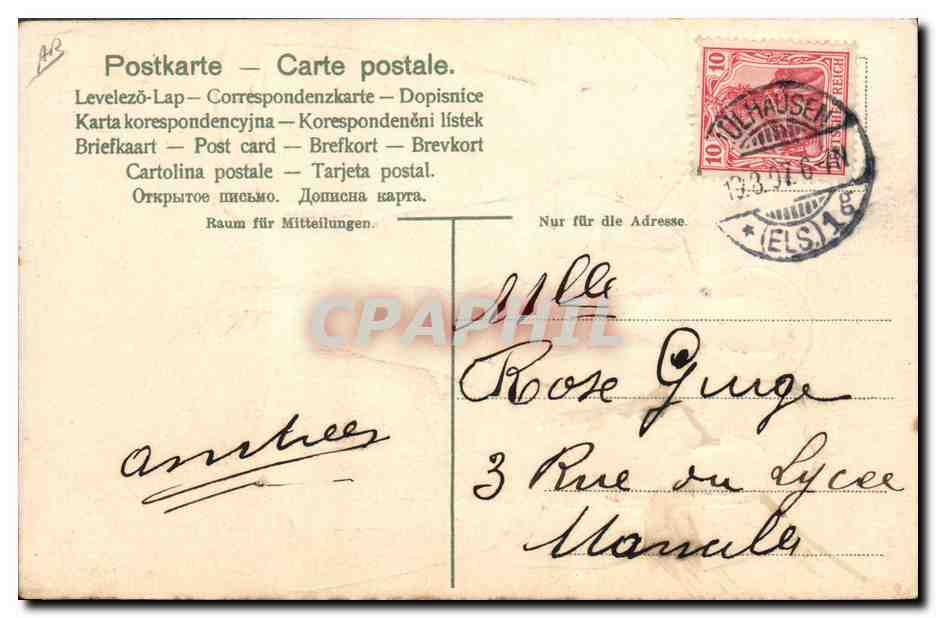 AB
Postkarte — Carte postale.
Levelező-Lap — Correspondenzkarte — Dopisnice
Karta korespondencyjna — Korespondenčni lístek
Briefkaart — Post card — Brefkort — Brevkort
Cartolina postale — Tarjeta postal.
Открытое письмо. Дописна карта.
Raum für Mitteilungen.
Nur für die Adresse.
10
10
REICH
ÜLHAUSEN
19.3.07. 6-7N
* (ELS.) 1g
CPAPHIL
Mlle
Rose Ginge
3 Rue du Lycee
amitiés